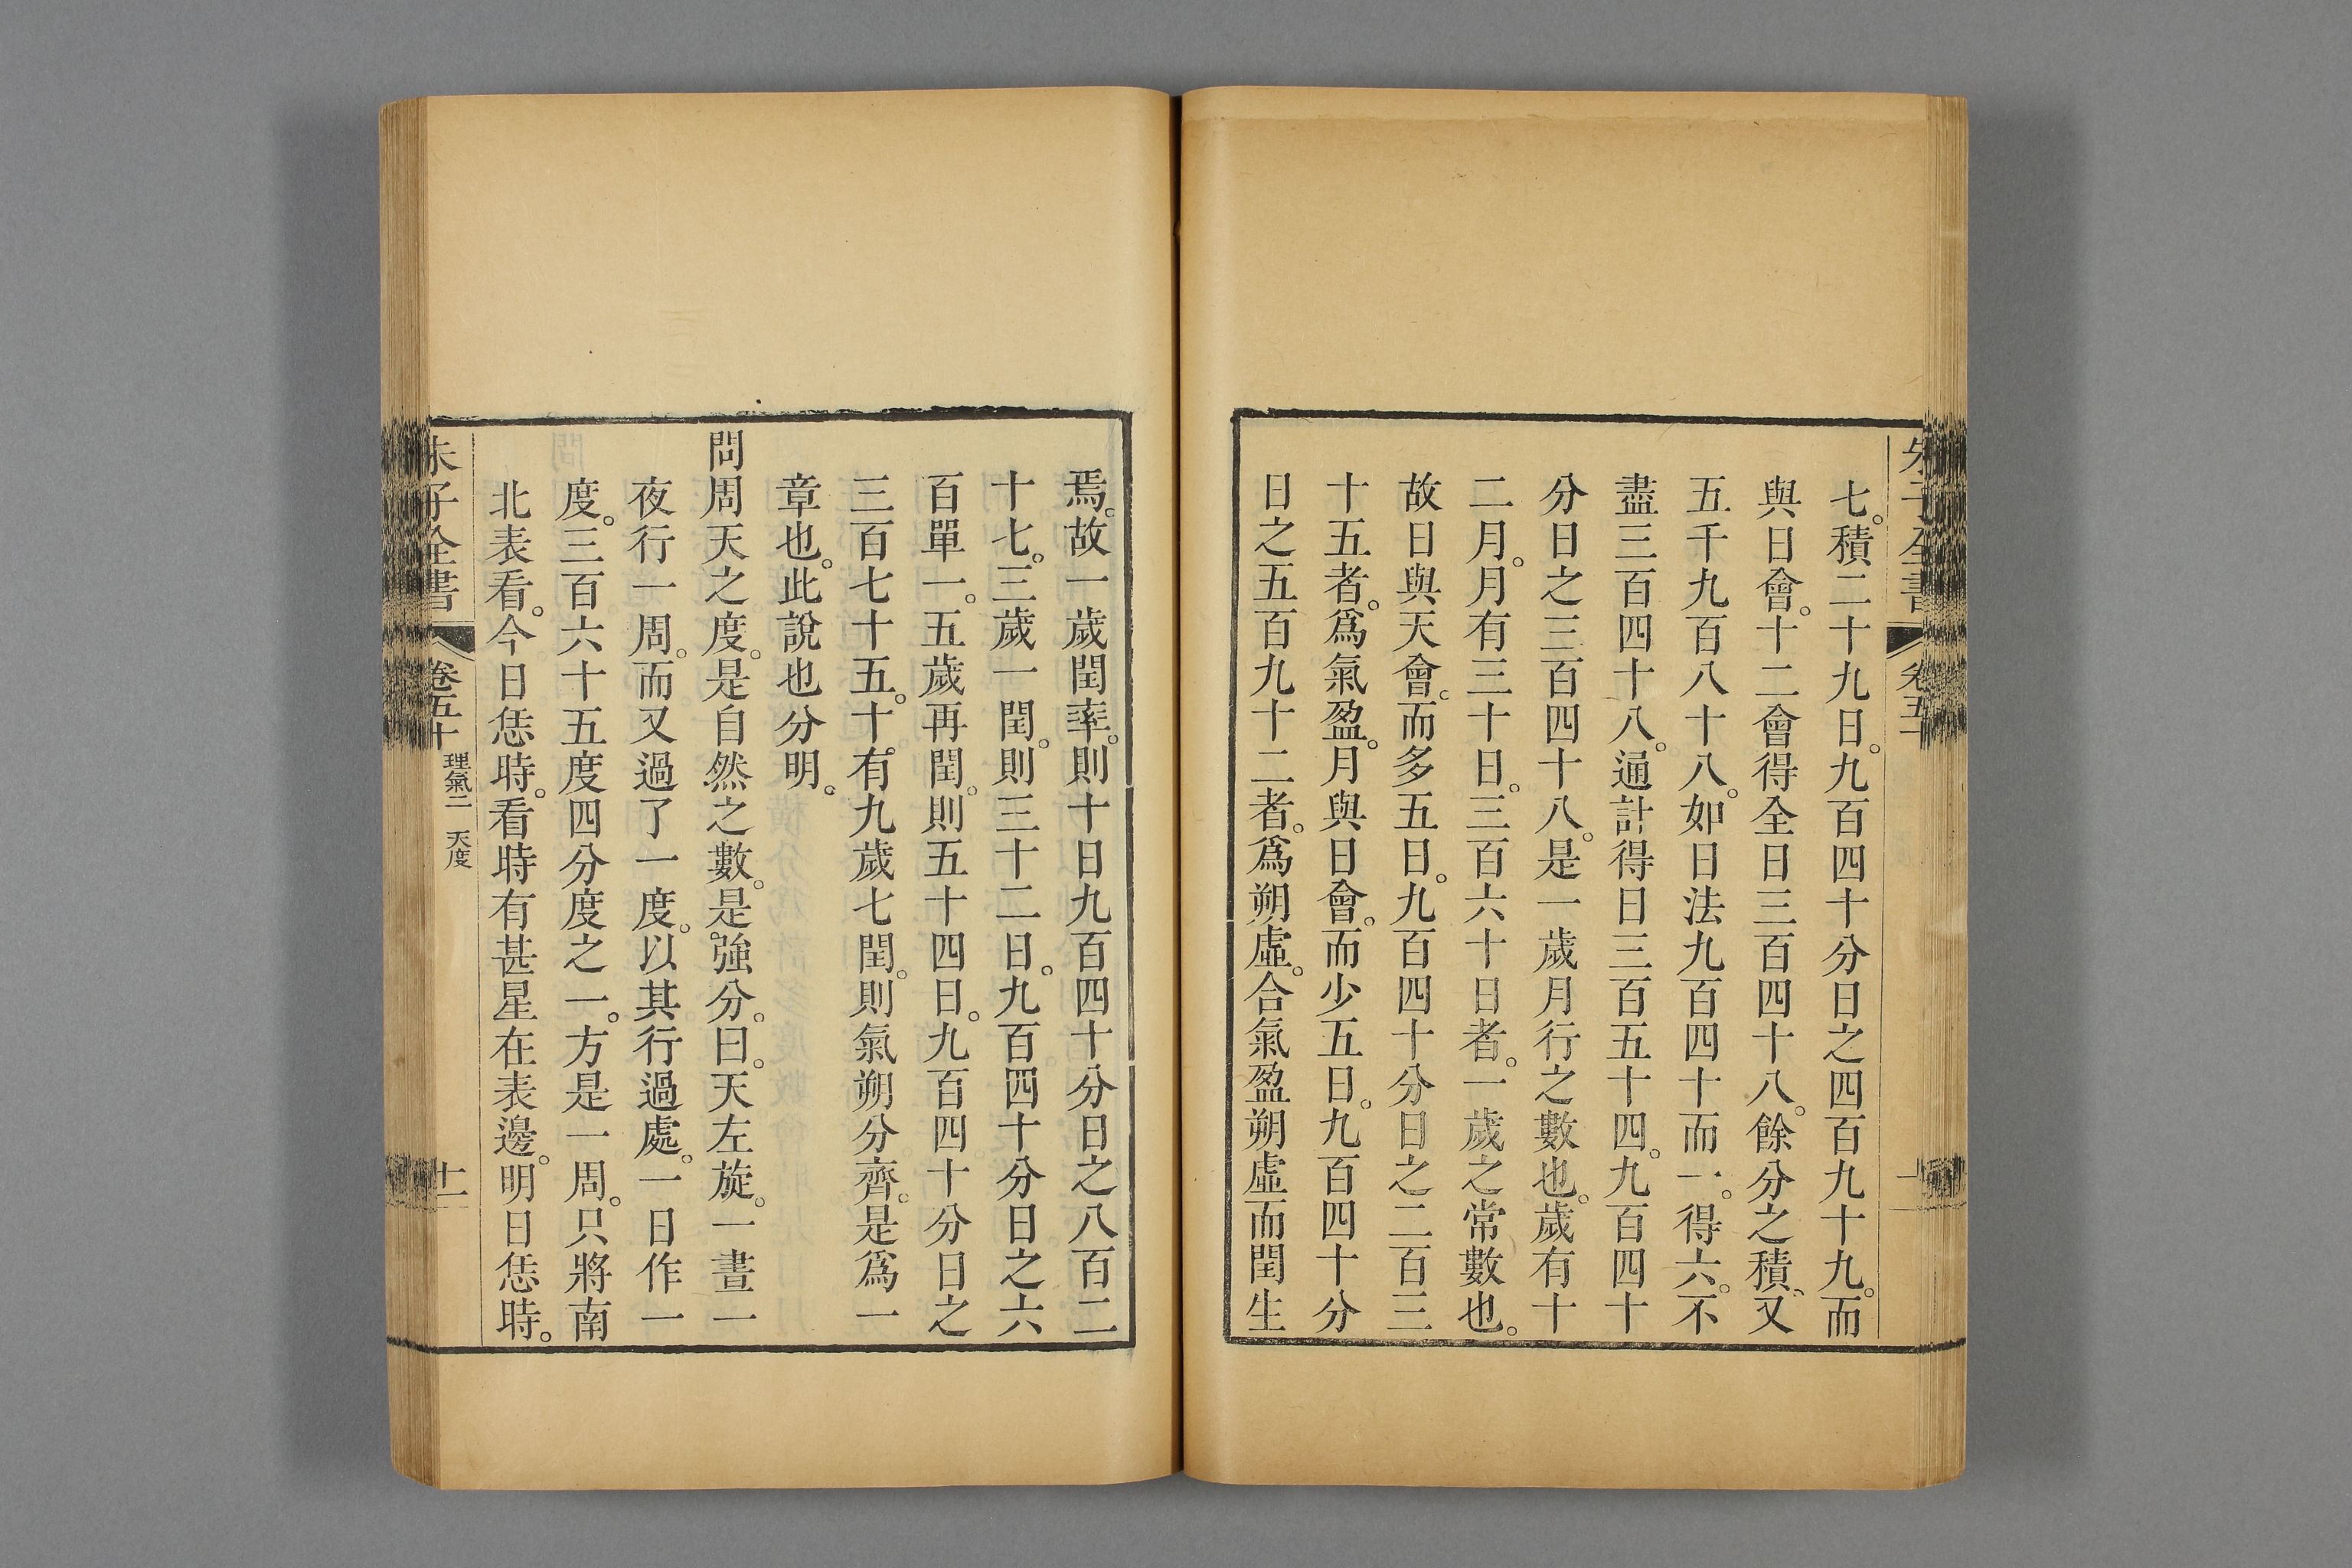 七。積二十九日。九百四十分日之四百九十九。而
與日會。十二會得全日三百四十八。餘分之積、又
五千九百八十八。如日法九百四十而一。得六。不
盡三百四十八。通計得日三百五十四。九百四十
分日之三百四十八。是一歲月行之數也。歲有十
二月。月有三十日。三百六十日者。一歲之常數也。
故日與天會。而多五日。九百四十分日之二百三
十五者。爲氣盈。月與日會。而少五日。九百四十分
日之五百九十二者。爲朔虛。合氣盈朔虛而閏生
焉。故一歲閏率。則十日九百四十分日之八百二
十七。三歲一閏。則三十二日。九百四十分日之六
百單一。五歲再閏。則五十四日。九百四十分日之
三百七十五。十有九歲七閏。則氣朔分齊。是爲一
章也。此說也分明。
問周天之度。是自然之數。是強分。曰。天左旋。一晝一
夜行一周。而又過了一度。以其行過處。一日作一
度。三百六十五度四分度之一。方是一周。只將南
北表看。今日恁時。看時有甚星在表邊。明日恁時。
朱子全書 卷五十 理氣二 天度 十一